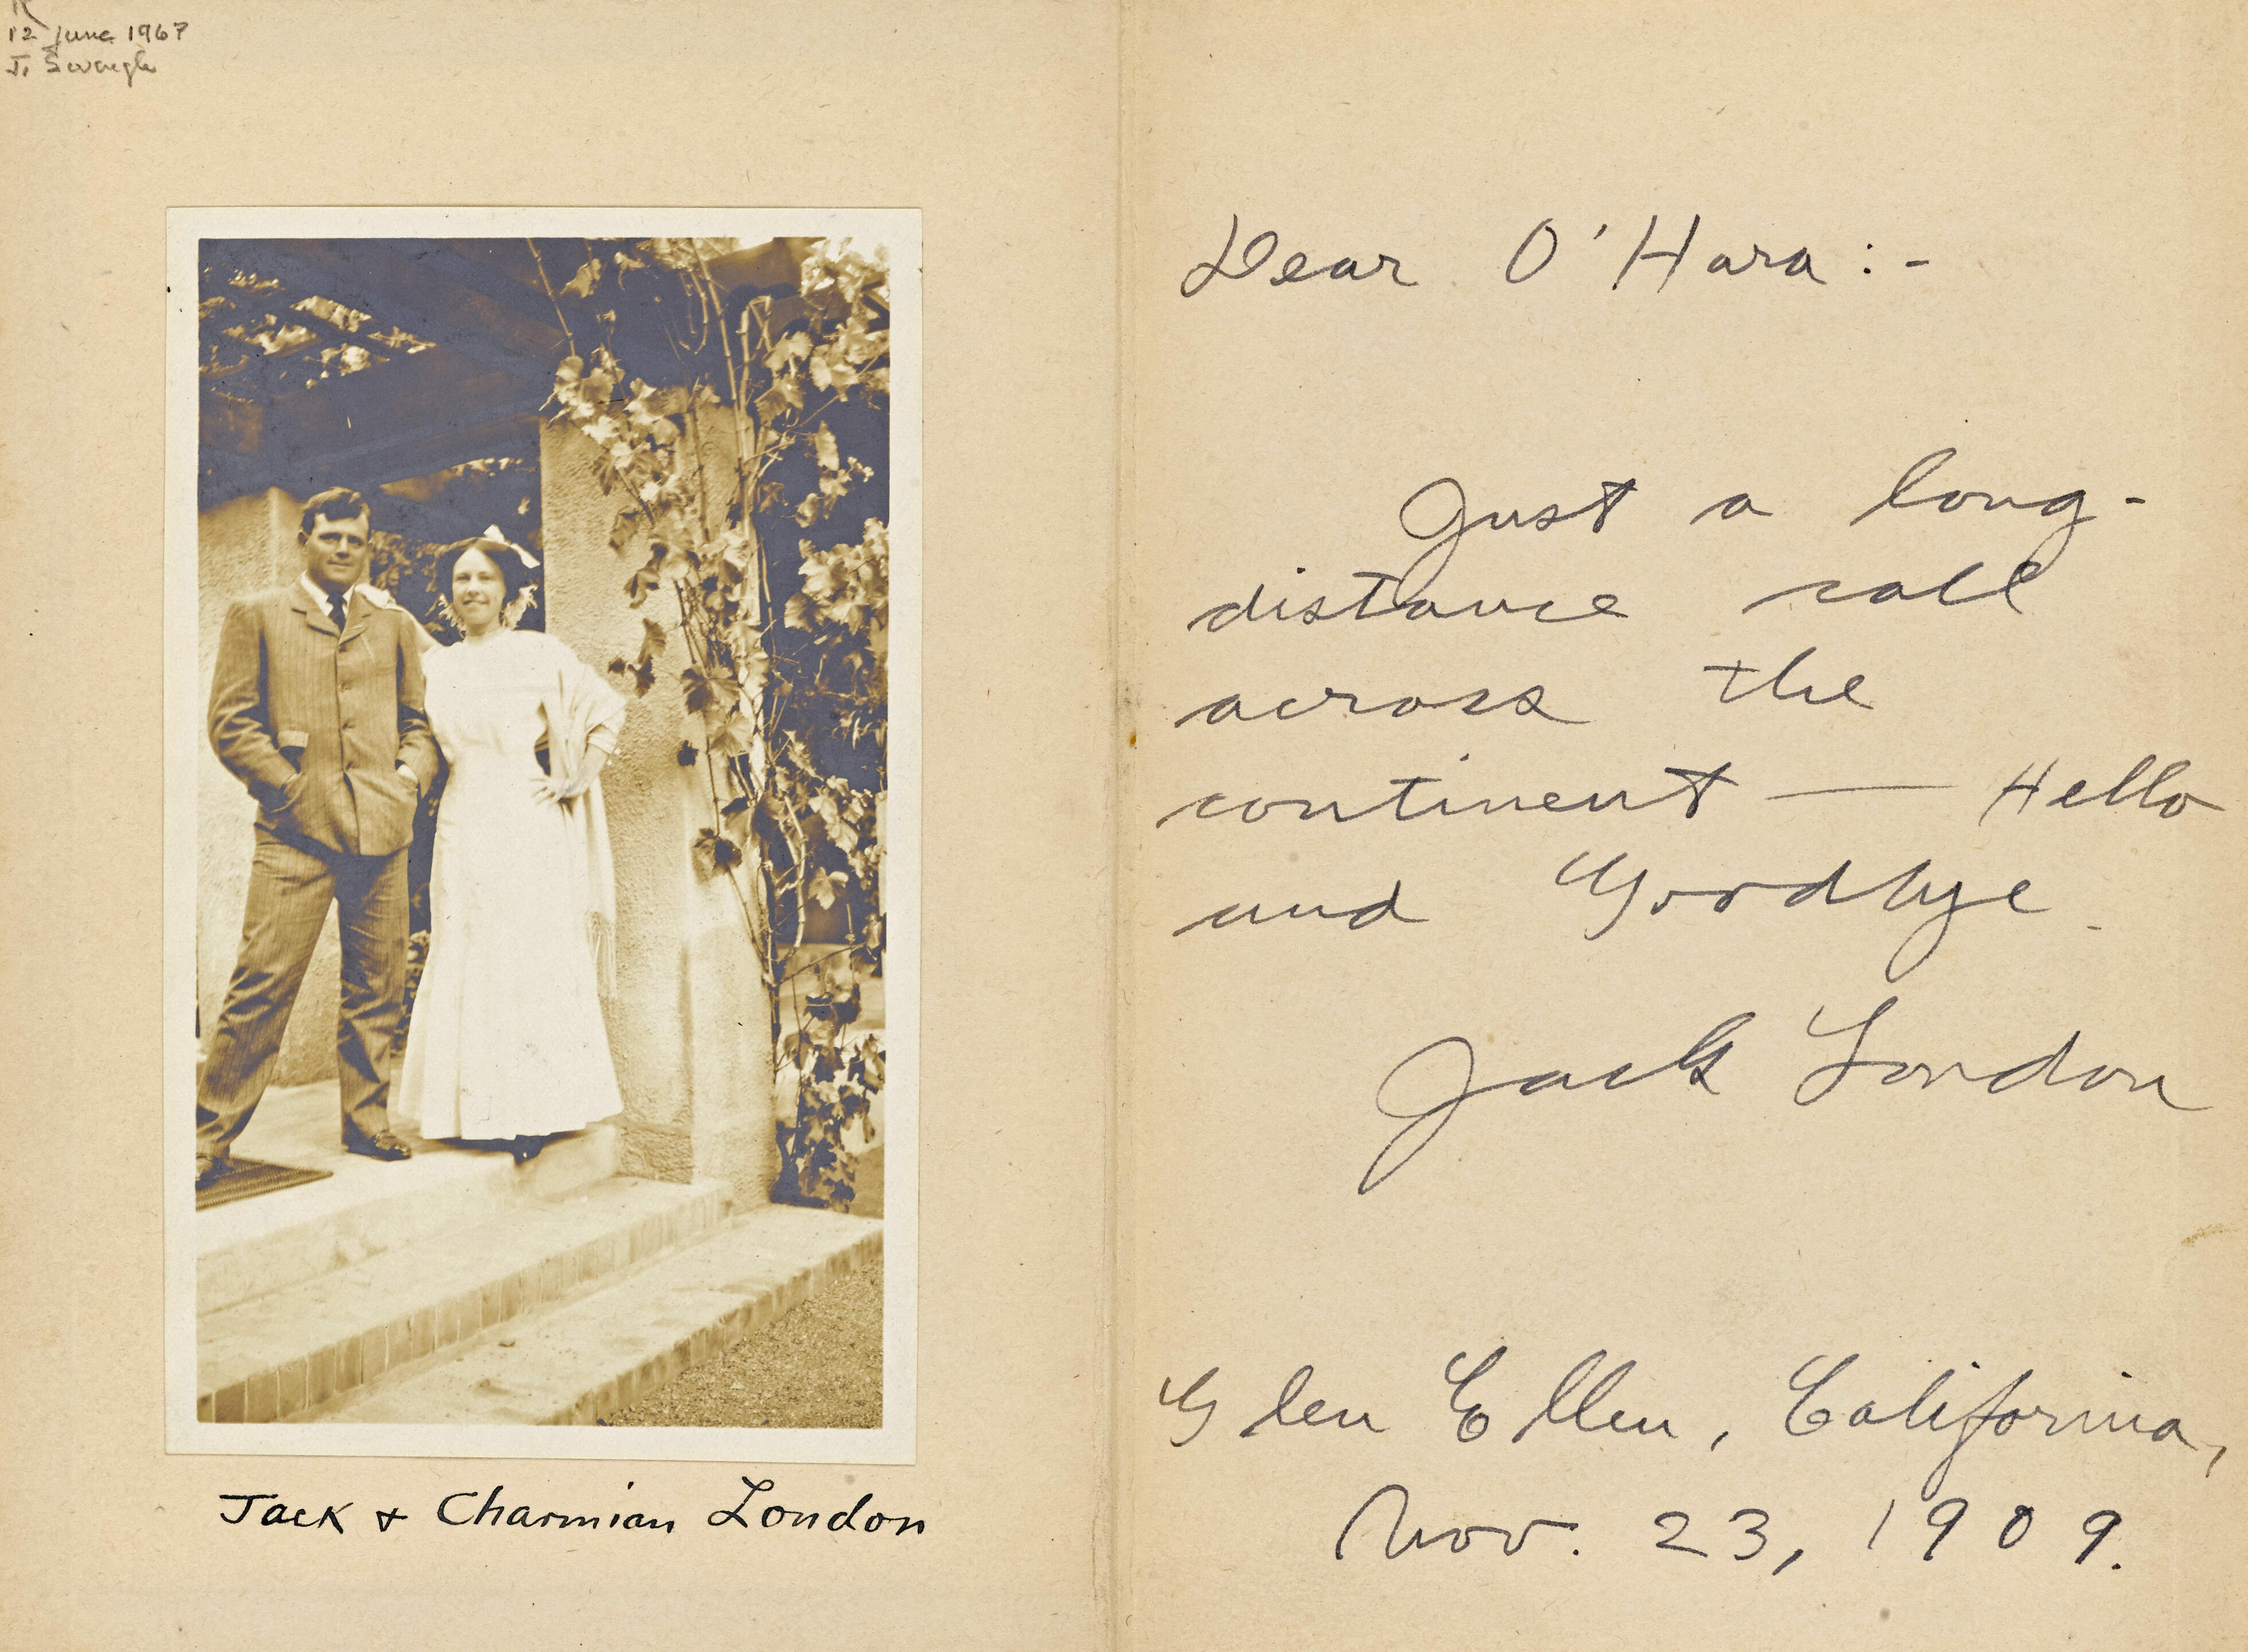 12 June 1967
J.
Jack + Charmian London
Dear O'Hara:-
Just a long-
distance call
across the
continent — Hello
and Goodbye.
Jack London
Glen Ellen, California,
Nov. 23, 1909.